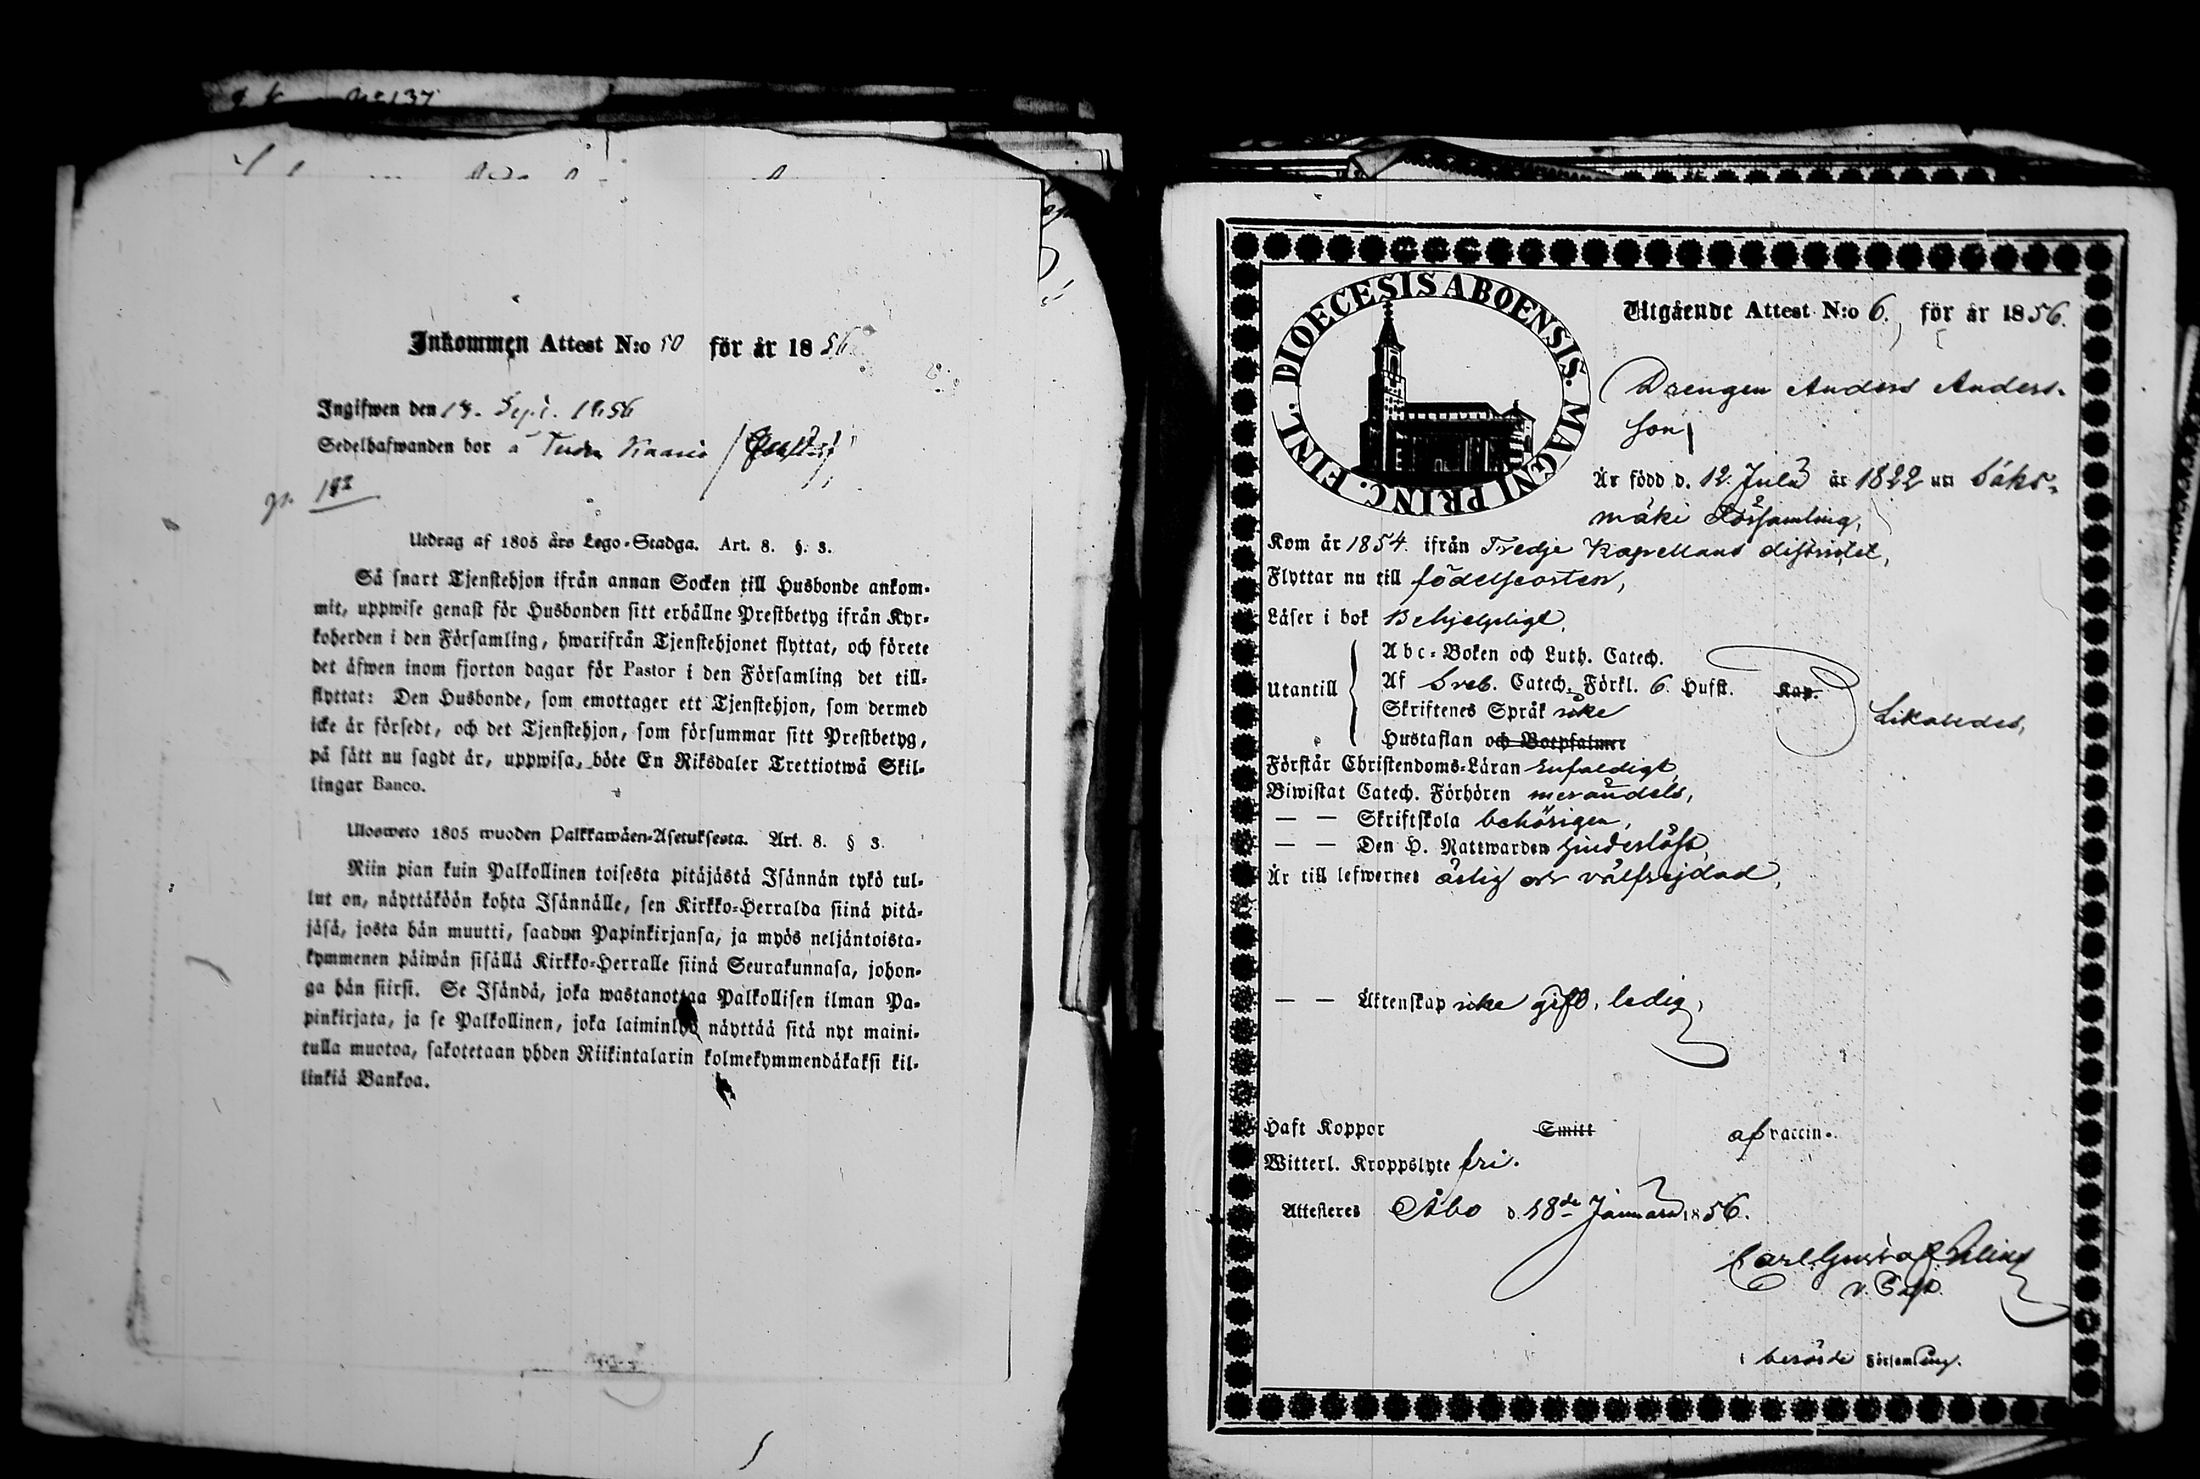 No 137
Inkommen Attest N:o 50 för år 1856
Ingifwen den 13. Sept. 1856
Sedelhafwanden bor å
183
Utdrag af 1805 års Lego-Stadga. Art. 8. §. 3.
Så snart Tjenstehjon ifrån annan Socken till Husbonde ankom-
mit, uppwise genast för Husbonden sitt erhållne Prestbetyg ifrån Kyr-
koherden i den Församling, hwarifrån Tjenstehjonet flyttat, och förete
det äfwen inom fjorton dagar för Pastor i den Församling det till-
flyttat: Den Husbonde, som emottager ett Tjenstehjon, som dermed
icke är försedt, och det Tjenstehjon, som försummar sitt Prestbetyg,
på sätt nu sagdt är, uppwisa, böte En Riksdaler Trettiotwå Skil-
lingar Banco.
Ulosweto 1805 wuoden Palkkawäen-Asetuksesta. Art. 8. § 3.
Niin pian kuin Palkollinen toisesta pitäjästä Isännän tykö tul-
lut on, näyttäköön kohta Isännälle, sen Kirkko-Herralda siinä pitä-
jäsä, josta hän muutti, saadun Papinkirjansa, ja myös neljäntoista-
kymmenen päiwän sisällä Kirkko-Herralle siinä Seurakunnasa, johon-
ga hän siirsi. Se Isändä, joka wastanottaa Palkollisen ilman Pa-
pinkirjata, ja se Palkollinen, joka laiminlyö näyttää sitä nyt maini-
tulla muotoa, sakotetaan yhden Riikintalarin kolmekymmendäkaksi kil-
linkiä Bankoa.
DIOECESIS ABOENSIS. MAGNI PRINC. FINL.
Utgående Attest N:o 6. för år 1856.
Drengen Anders Anders-
son
Är född d. 12 Julii år 1822 uti Säks-
mäki Församling,
Kom år 1854. ifrån Tredje Kapellans distriktet,
Flyttar nu till födelseorten,
Läser i bok Behjelpligt,
Utantill
Abc-Boken och Luth. Catech.
Af Sveb. Catech. Förkl. 6. Hufst. Kap.
Skriftenes Språk icke
Likaledes,
Hustaflan och Botpsalmer
Förstår Christendoms-Läran Enfaldigt,
Biwistat Catech. Förhören merendels,
— — Skriftskola behörigen,
— — Den H. Nattwarden hinderlöst,
Är till lefwernet ärlig och välfrejdad,
— — Äktenskap icke gift, ledig,
Haft Koppor Smitt af vaccin.
Witterl. Kroppslyte fri.
Attesteres Åbo d. 18de Januari 1856.
Carl Gustaf
i berörde Församling.